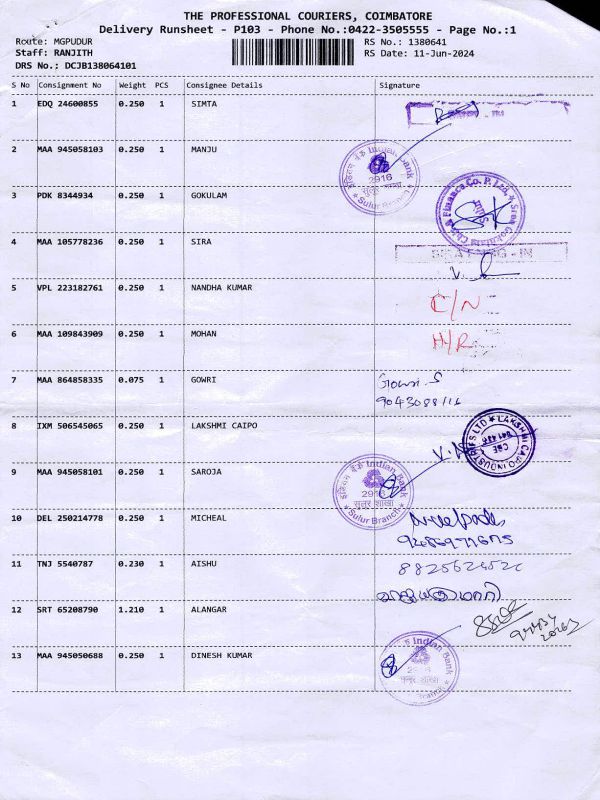 THE PROFESSIONAL COURIERS, COIMBATORE
Delivery Runsheet - P103 - Phone No.:0422-3505555 - Page No.:1
Route: MGPUDUR RS No.: 1380641
Staff: RANJITH RS Date: 11-Jun-2024
DRS No.: DCJB138064101
S No Consignment No Weight PCS Consignee Details Signature
1 EDQ 24600855 0.250 1 SIMTA
2 MAA 945058103 0.250 1 MANJU
इंडियन बैंक Indian Bank
2916
सुलूर शाखा
Sulur Branch
3 PDK 8344934 0.250 1 GOKULAM
Chits & Finance Co. P. Ltd.
Sulur
4 MAA 105778236 0.250 1 SIRA
5 VPL 223182761 0.250 1 NANDHA KUMAR C/N
6 MAA 109843909 0.250 1 MOHAN H/R
7 MAA 864858335 0.075 1 GOWRI
8 IXM 506545065 0.250 1 LAKSHMI CAIPO
LAKSHMI CAIPO INDUSTRIES LTD
9 MAA 945058101 0.250 1 SAROJA
इंडियन बैंक Indian Bank
2916
सुलूर शाखा
Sulur Branch
10 DEL 250214778 0.250 1 MICHEAL
11 TNJ 5540787 0.230 1 AISHU
12 SRT 65208790 1.210 1 ALANGAR
13 MAA 945050688 0.250 1 DINESH KUMAR
Indian Bank